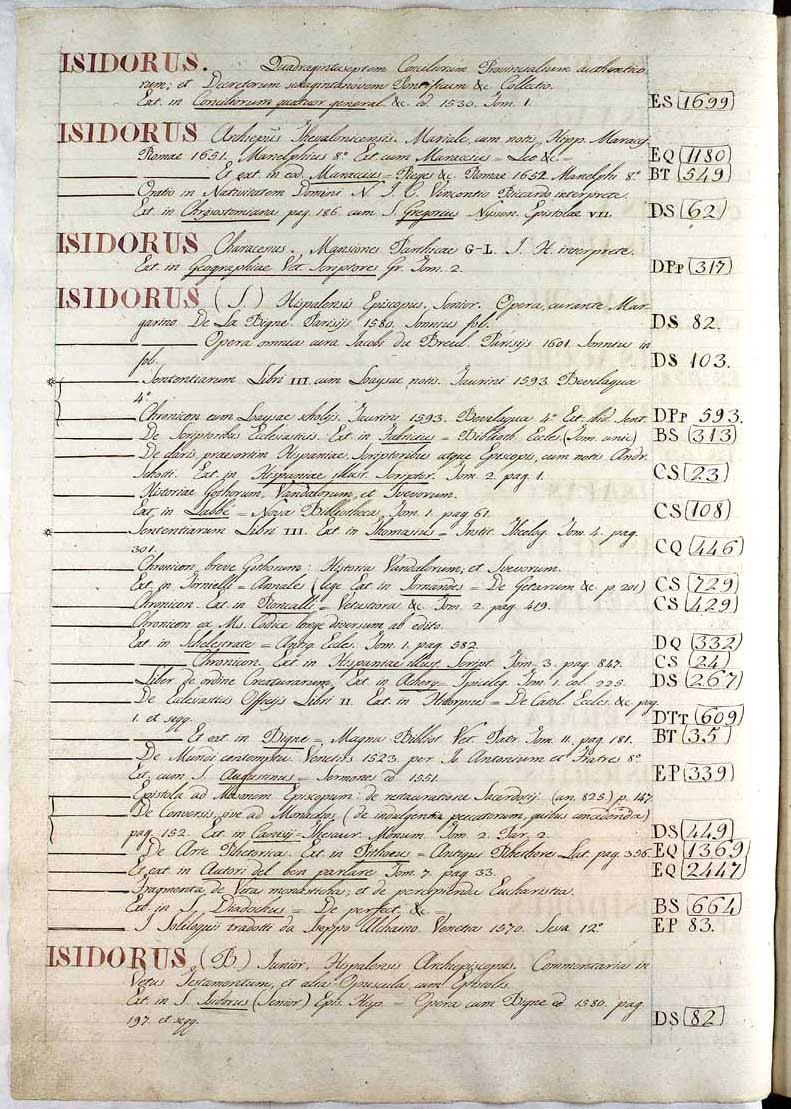 ISIDORUS. Quadragintaseptem Conciliorum Provincialium authentico-
rum; et Decretorum sexagintanovem Pontificum &c. Collectio.
Ext. in Conciliorum quatuor general. &c. ed. 1530. Tom. 1. ES 1699
ISIDORUS Archiepũs Thessalonicensis. Mariale, cum notis Hipp. Maraccij
Romae 1651. Manelphius 8º Ext. cum Maraccius = Leo &c. = EQ 1180
Et ext. in eod. Maraccius = Reges &c. Romae 1652. Manelphi 8º BT 549
Oratio in Nativitatem Domini N. J. C. Vincentio Riccardo interprete.
Ext. in Chrysostomiana pag. 186. cum S. Gregorius Nyssen. Epistolae VII. DS 62
ISIDORUS Characenus. Mansiones Parthicae G-L. J. H. interprete.
Ext. in Geographiae Vet. Scriptores Gr. Tom. 2. DPp 317
ISIDORUS (S.) Hispalensis Episcopus. Senior. Opera, curante Mar-
garino De La Bigne. Parisijs. 1580. Sonnius fol. DS 82.
Opera omnia cura Jacobi du Breul. Parisijs 1601. Sonnius in
fol. DS 103.
* Sententiarum Libri III. cum Loaysae notis. Taurini 1593. Bevilaqua
4º
Chronicon cum Loaysae scholijs. Taurini. 1593. Bevilaqua 4º Ext. ibid. Sent. DPp 593.
De Scriptoribus Ecclesiasticis. Ext. in Fabricius = Biblioth. Eccles. (Tom. unic) BS 313
De claris praesertim Hispaniae, Scriptoribus atque Episcopis, cum notis Andr.
Schotti. Ext. in Hispaniae illust. Scriptor. Tom. 2. pag. 1. CS 23
Historiae Gothorum, Vandalorum, et Svevorum.
Ext. in Labbé = Nova Bibliotheca, Tom. 1. pag. 61. CS 108
* Sententiarum Libri III. Ext. in Thomasius = Instit. Theolog. Tom. 4. pag.
301. CQ 446
Chronicon breve Gothorum: Historia Vandalorum, et Svevorum.
Ext. in Tornielli = Annales (lege Ext. in Jornandes = De Getarum &c. p. 201) CS 729
Chronicon. Ext. in Roncalli = Vetustiora &c. Tom. 2. pag. 419. CS 429
Chronicon ex Ms. Codice longe diversum ab edito.
Ext. in Schelestrate = Antiq. Eccles. Tom. 1. pag. 582. DQ 332
Chronicon. Ext. in Hispaniae illust. Script. Tom. 3. pag. 847. CS 24
Liber de ordine Creaturarum. Ext. in Achery = Spicileg. Tom. 1. col. 225. DS 267
De Ecclesiasticis Officijs Libri II. Ext. in Hittorpius = De Catol. Eccles. &c. pag.
1. et seqq. DTt 609
Et ext. in Bigne = Magna Bibliot. Vet. Patr. Tom. 11. pag. 181. BT 35
De Mundi contemptu. Venetijs 1523. per Jo. Antonium et Fratres 8º
Ext. cum S. Augustinus = Sermones ed. 1551. EP 339
Epistola ad Massonem Episcopum: de restauratione Sacerdotij. (an. 825.) p. 147.
De Conversis, sive ad Monachos, (de indulgentia peccatorum,
pag. 152. Ext. in Canisij = Thesaur. Monum. Tom. 2. Par. 2. DS 449
De Arte Rhetorica. Ext. in Pithoeus = Antiqui Rhethores Lat. pag. 356. EQ 1369
Et ext. in Autori del ben parlare Tom. 7. pag. 33. EQ 2447
Fragmenta de Vitas monasticha; et de percipienda Eucharistia.
Ext. in S. Diadochus = De perfect. &c. BS 664
I Soliloquii tradotti da Iseppo Alchaino. Venetia 1570. Seva 12º EP 83.
ISIDORUS (B.) Junior, Hispalensis Archiepiscopus. Commentaria in
Vetus Testamentum, et alia Opuscula, cum Epistolis.
Ext. in S. Isidorus (Senior) Epis. Hisp. = Opera cum Bigne ed. 1580. pag.
197. et seqq. DS 82